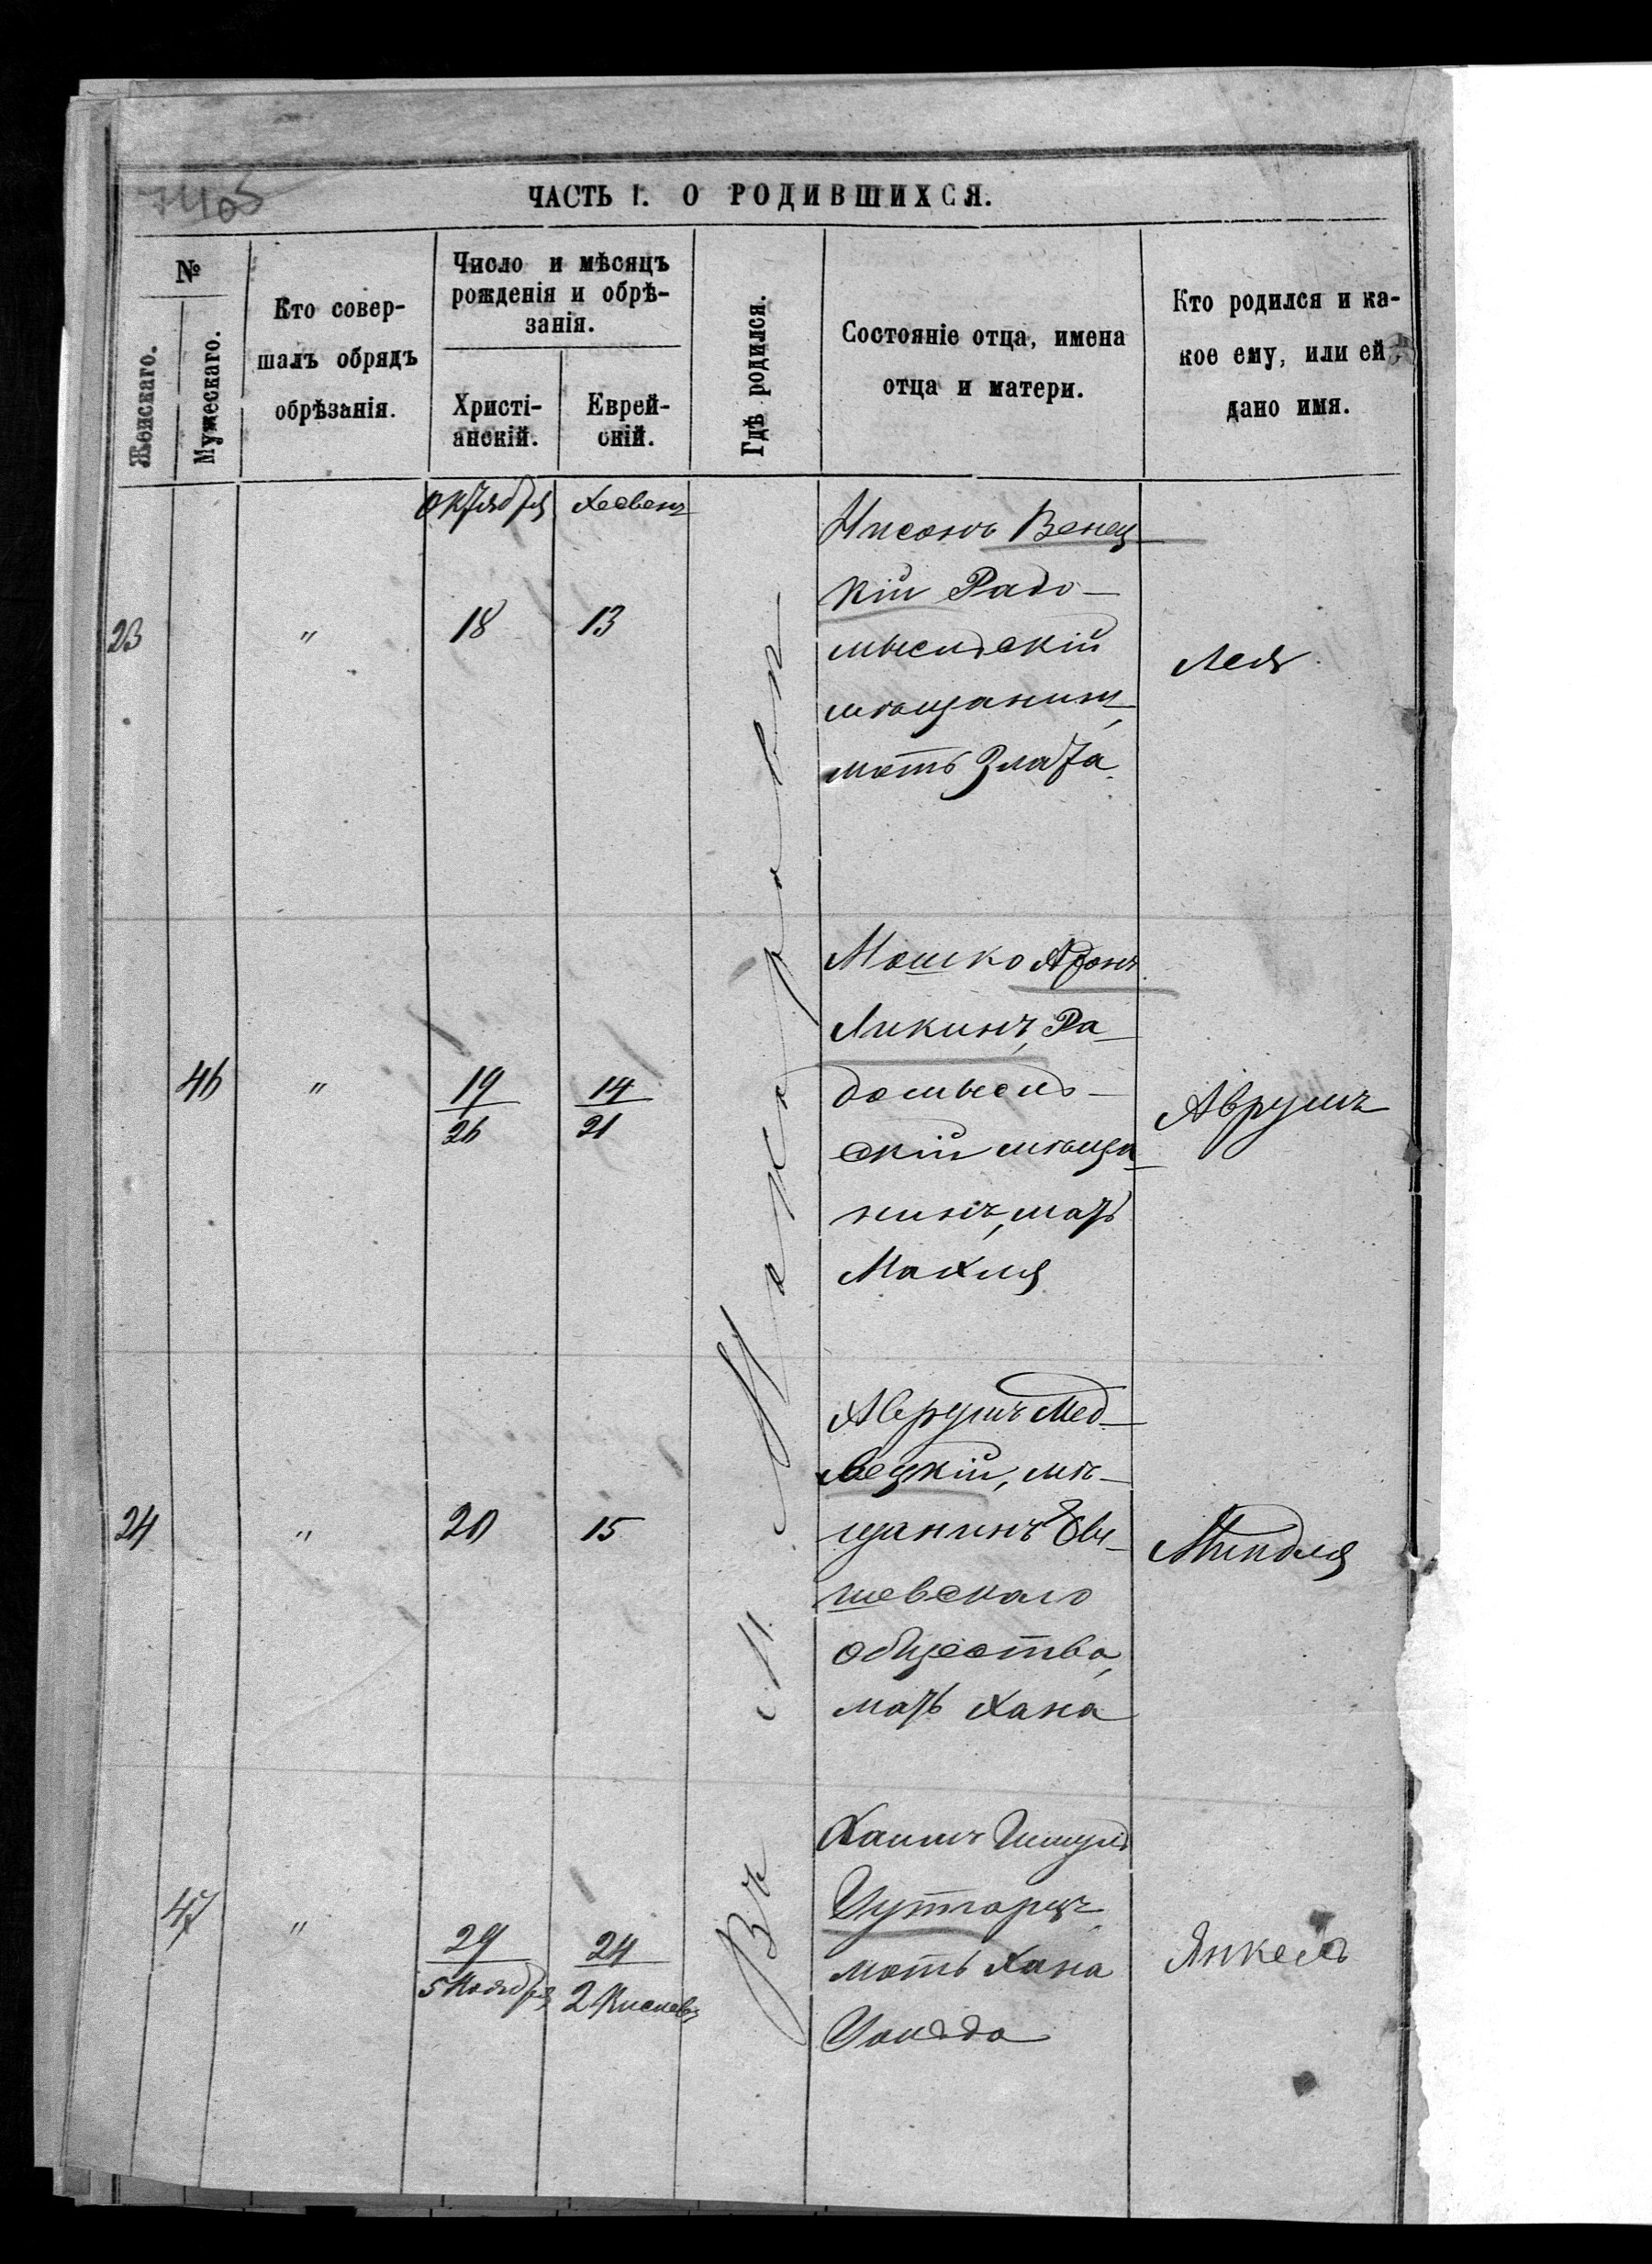 7405
ЧАСТЬ I. О РОДИВШИХСЯ.
№
Женскаго.
Мужескаго.
Кто совер-
шалъ обрядъ
обрѣзанія.
Число и мѣсяцъ
рожденія и обрѣ-
занія.
Христі-
анскій.
Еврей-
скій.
Гдѣ родился.
Состояніе отца, имена
отца и матери.
Кто родился и ка-
кое ему, или ей
дано имя.
Октября
Хесвенъ
23
"
18
13
Нисонъ Венец
кій Радо-
мысльскій
мѣщанинъ,
мать Злата
Лея
Въ М. Макаровѣ
46
"
19
26
14
21
Мошко Аронъ
Ликинъ, Ра-
домысль-
скій мѣща-
нинъ, мать
Махля
Аврумъ
24
"
20
15
Аврумъ Мед-
вецкій, мѣ-
щанинъ
шевскаго
общества,
мать Хана
Миндля
47
"
29
5 Ноября
24
2 Кислевъ
Хаимъ
мать Хана
Янкель